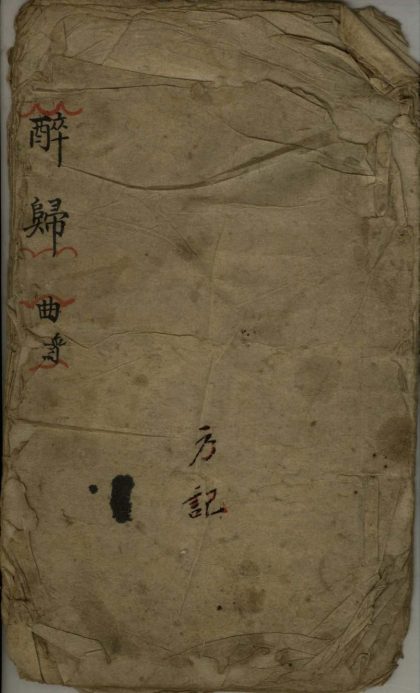 醉歸 曲
方記